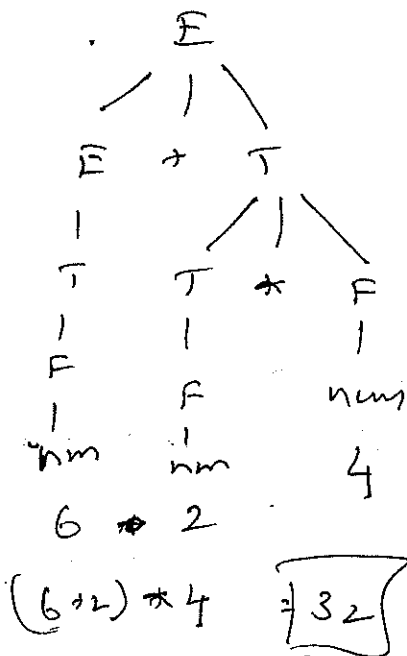 E
E + T
T T * F
F F num
num num 4
6 * 2
(6+2) * 4 = 32